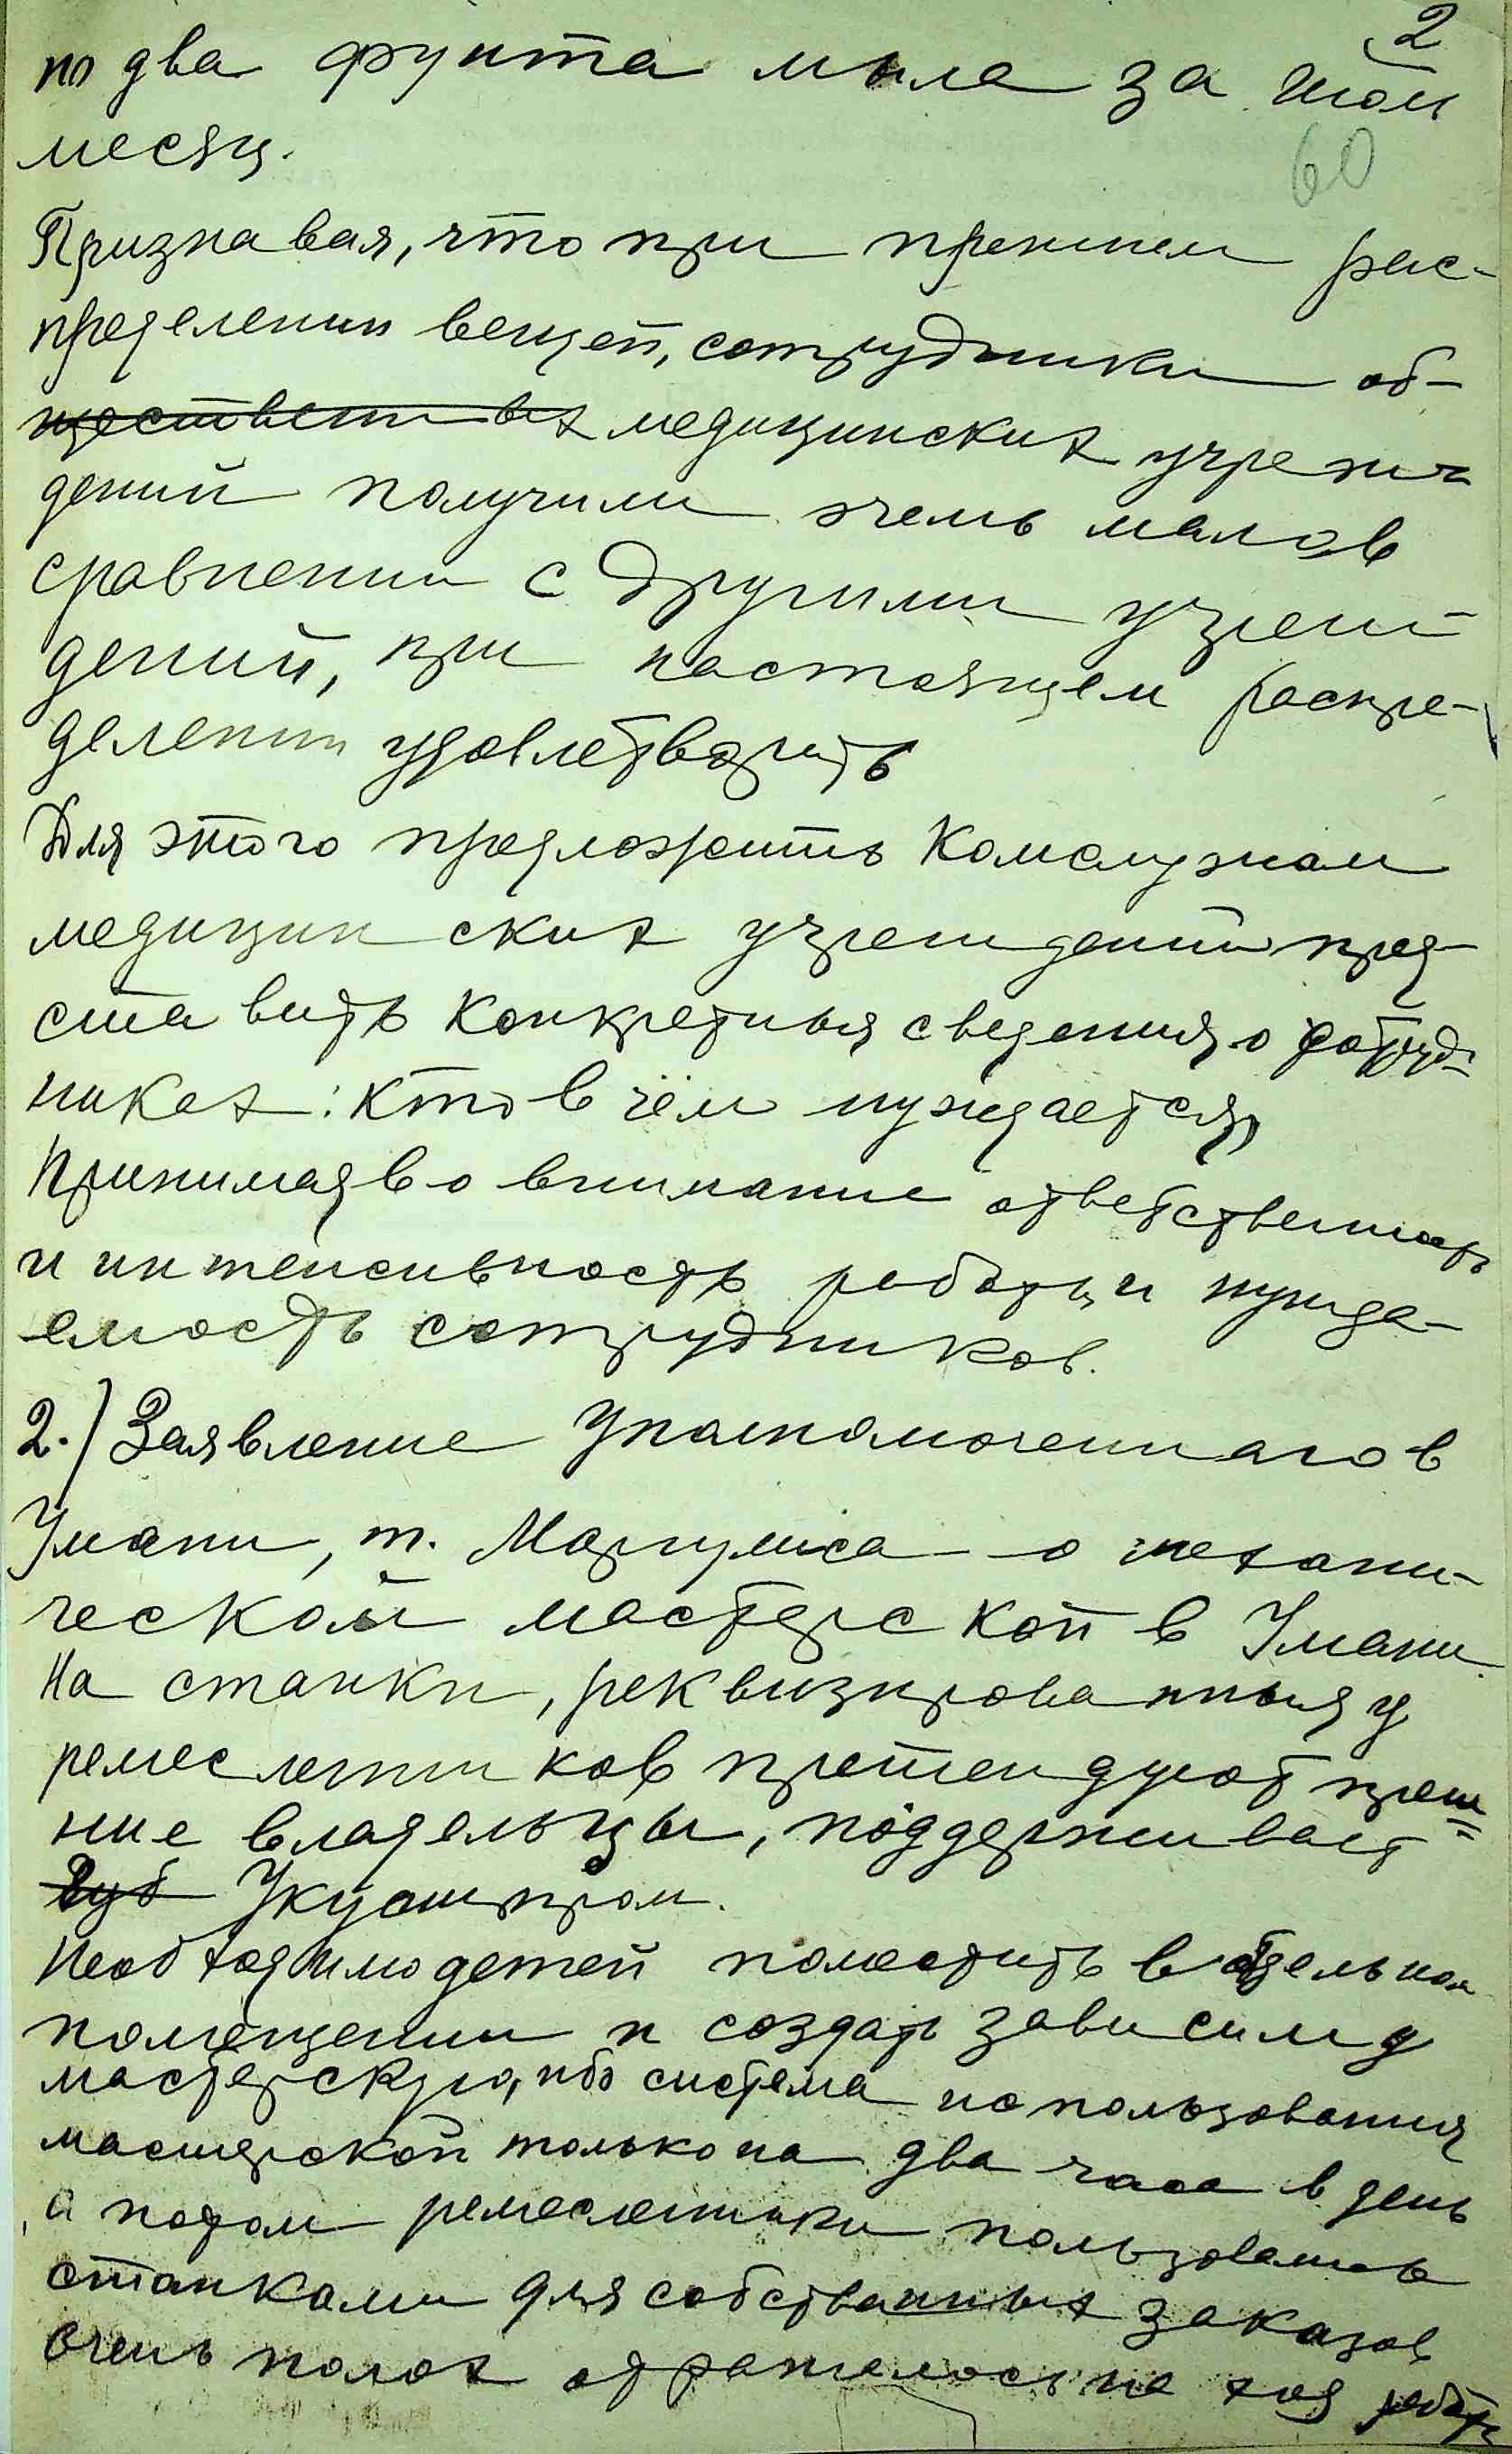 2
по два фунта мыла за июль
60
месяц.
Признавая, что при прежнем рас-
пределении вещей, сотрудники об-
щественных медицинских учреж-
дений получили очень мало в
сравнении с другими учреж-
дений, при настоящем распре-
делении удовлетворить
Для этого предложить Комслужам
медицинских учреждений пред-
ставить конкретныя сведения о сотруд-
никах: кто в чём нуждается,
Принимая во внимание ответственность
и интенсивность работы и нужда-
емость сотрудников.
2.) Заявление Уполномоченнаго в
Умани, т. Маргулиса - о механи-
ческой мастерской в Умани.
На станки, реквизированныя у
ремесленников претендуют преж-
ние владельцы, поддерживает
Губ Укустпром.
Необходимо детей поместить в отдельном
помещении и создать
мастерскую, ибо система использования
мастерской только на два часа в день
а потом ремесленники пользовались
станками для собственных заказов
очень плохо отражалось на ход работы